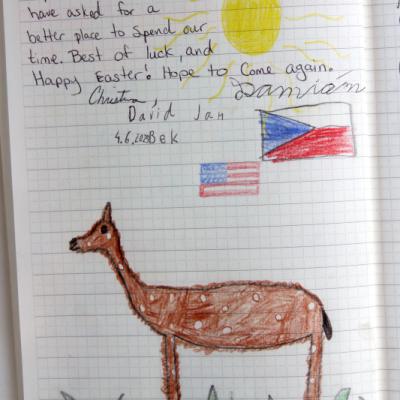 have asked for a
better place to spend our
time. Best of luck, and
Happy Easter! Hope to come again.
Christina, Damián
David Jan
Bek